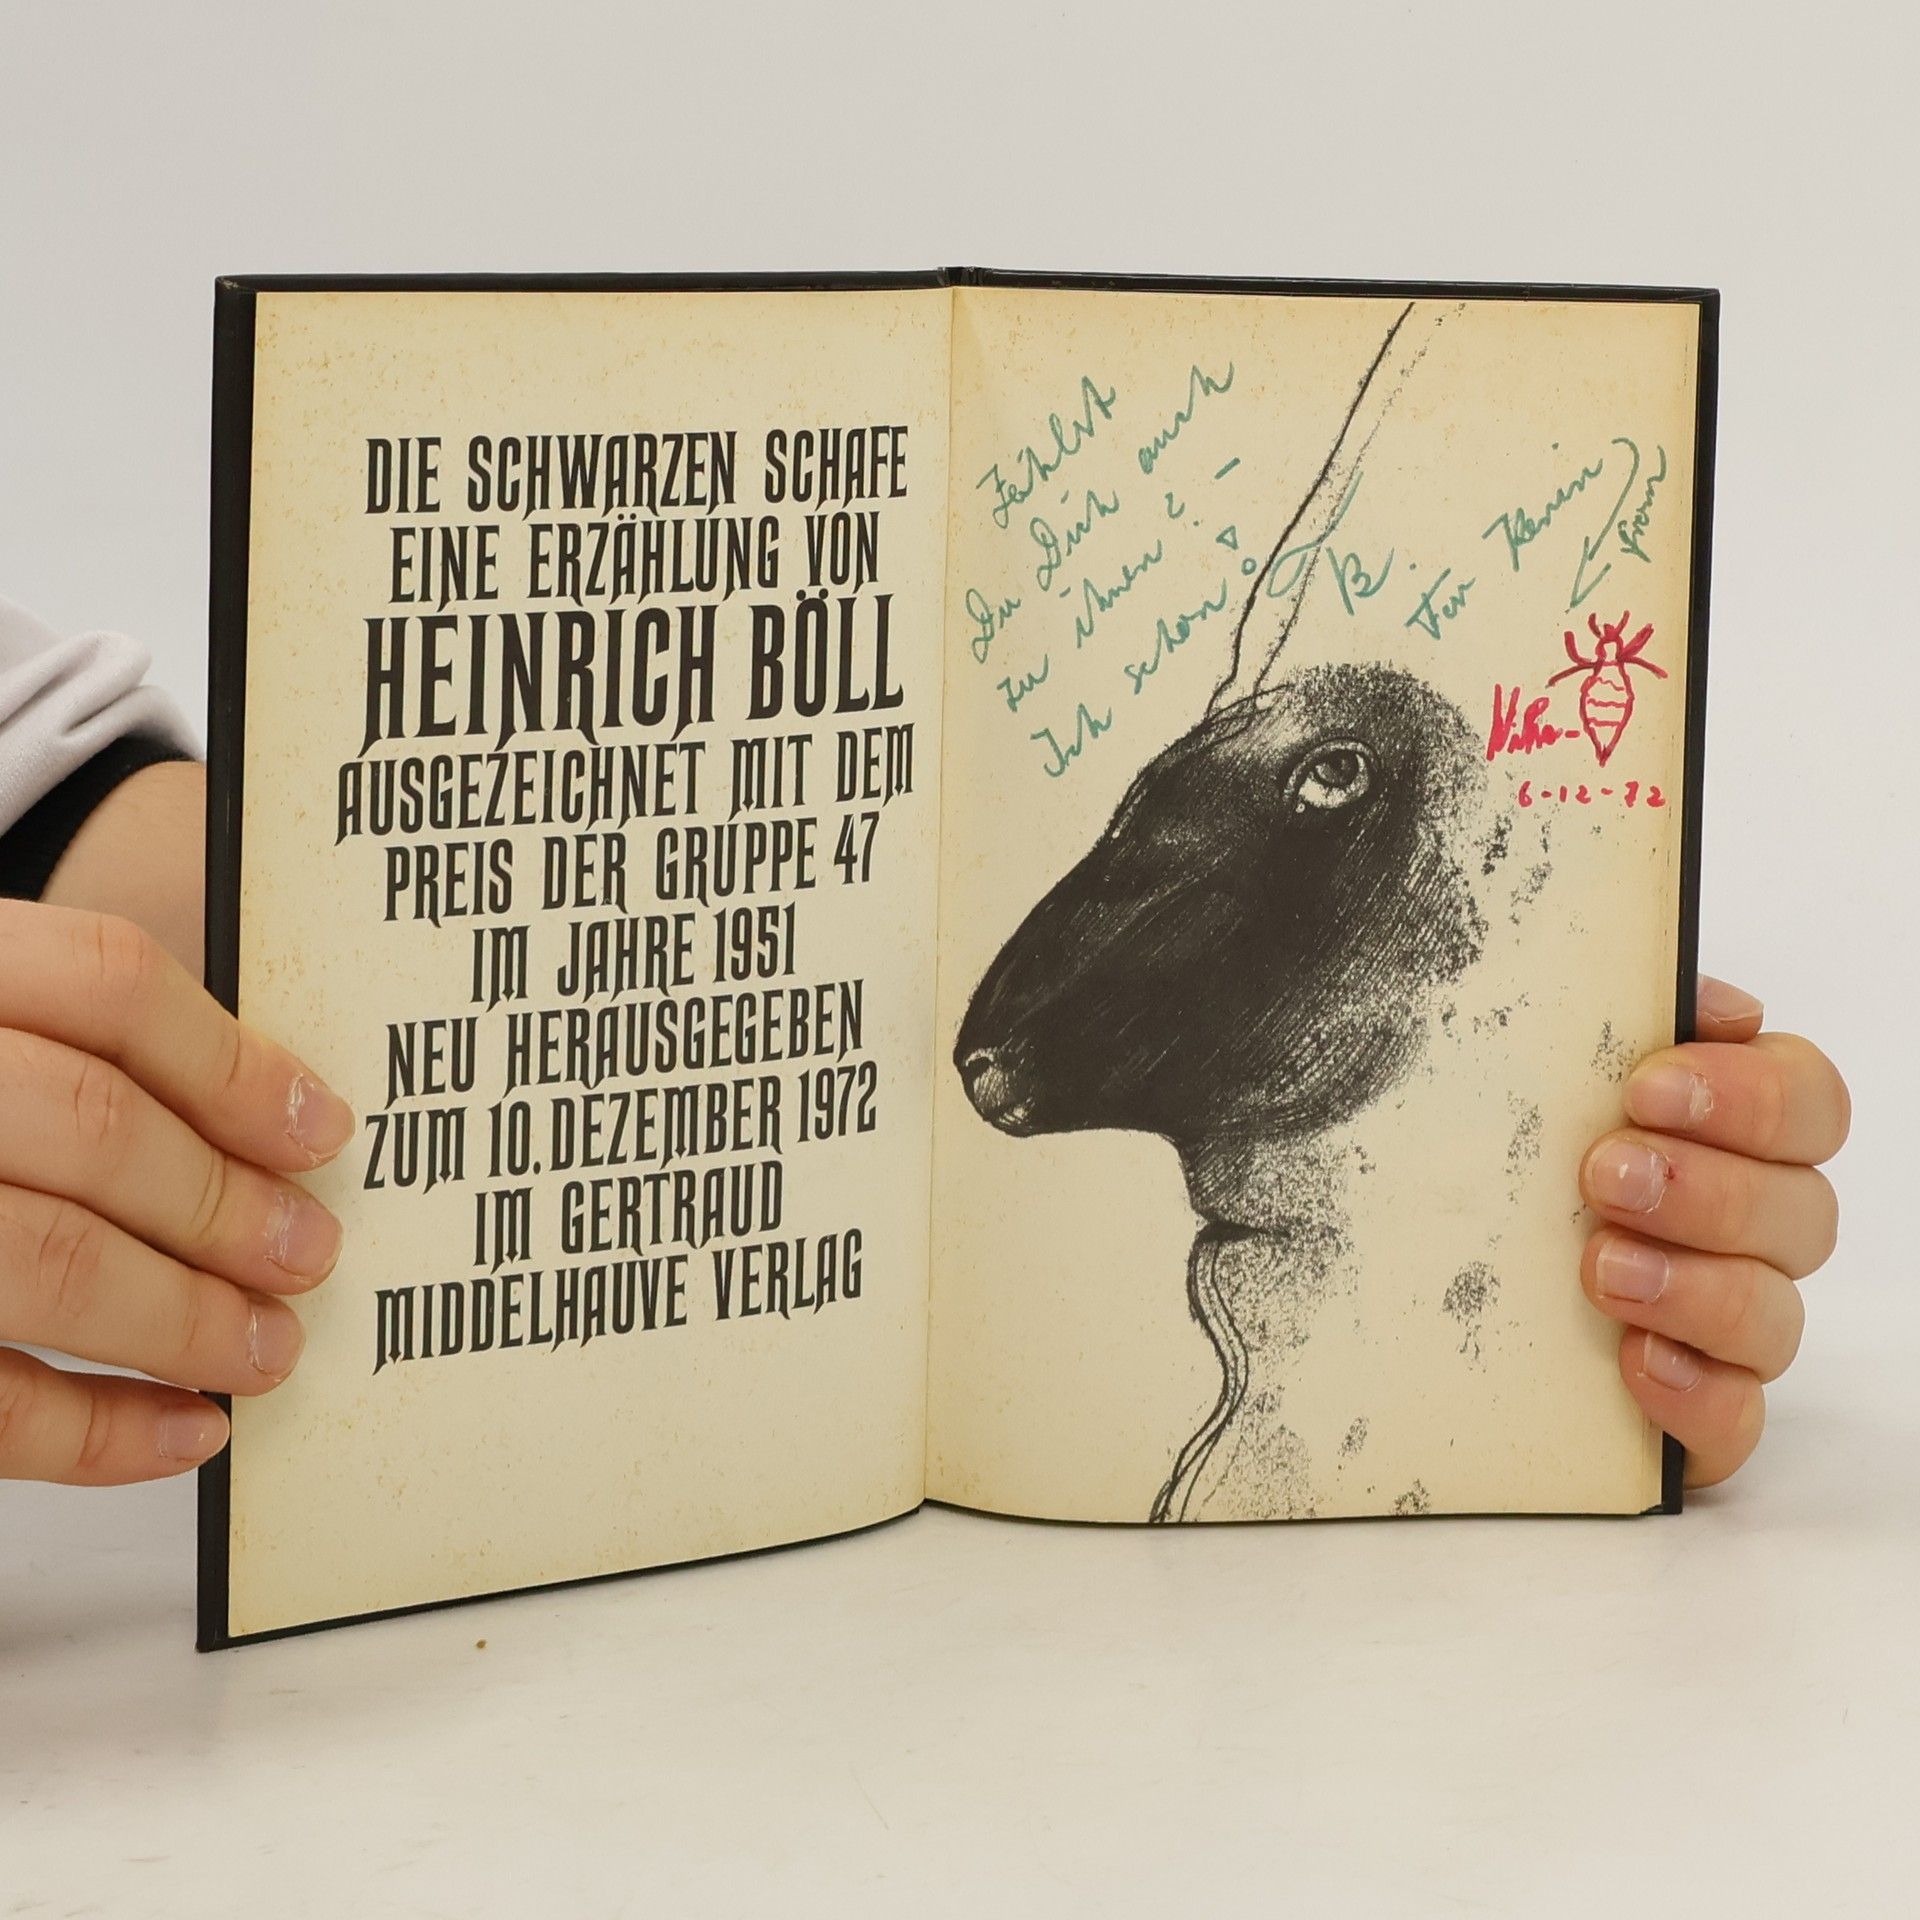 DIE SCHWARZEN SCHAFE
EINE ERZÄHLUNG VON
HEINRICH BÖLL
AUSGEZEICHNET MIT DEM
PREIS DER GRUPPE 47
IM JAHRE 1951
NEU HERAUSGEGEBEN
ZUM 10. DEZEMBER 1972
IM GERTRAUD
MIDDELHAUVE VERLAG
Zählst
Du Dich auch
zu ihnen? –
Ich schon!
B.
For Kevin
from
6-12-72